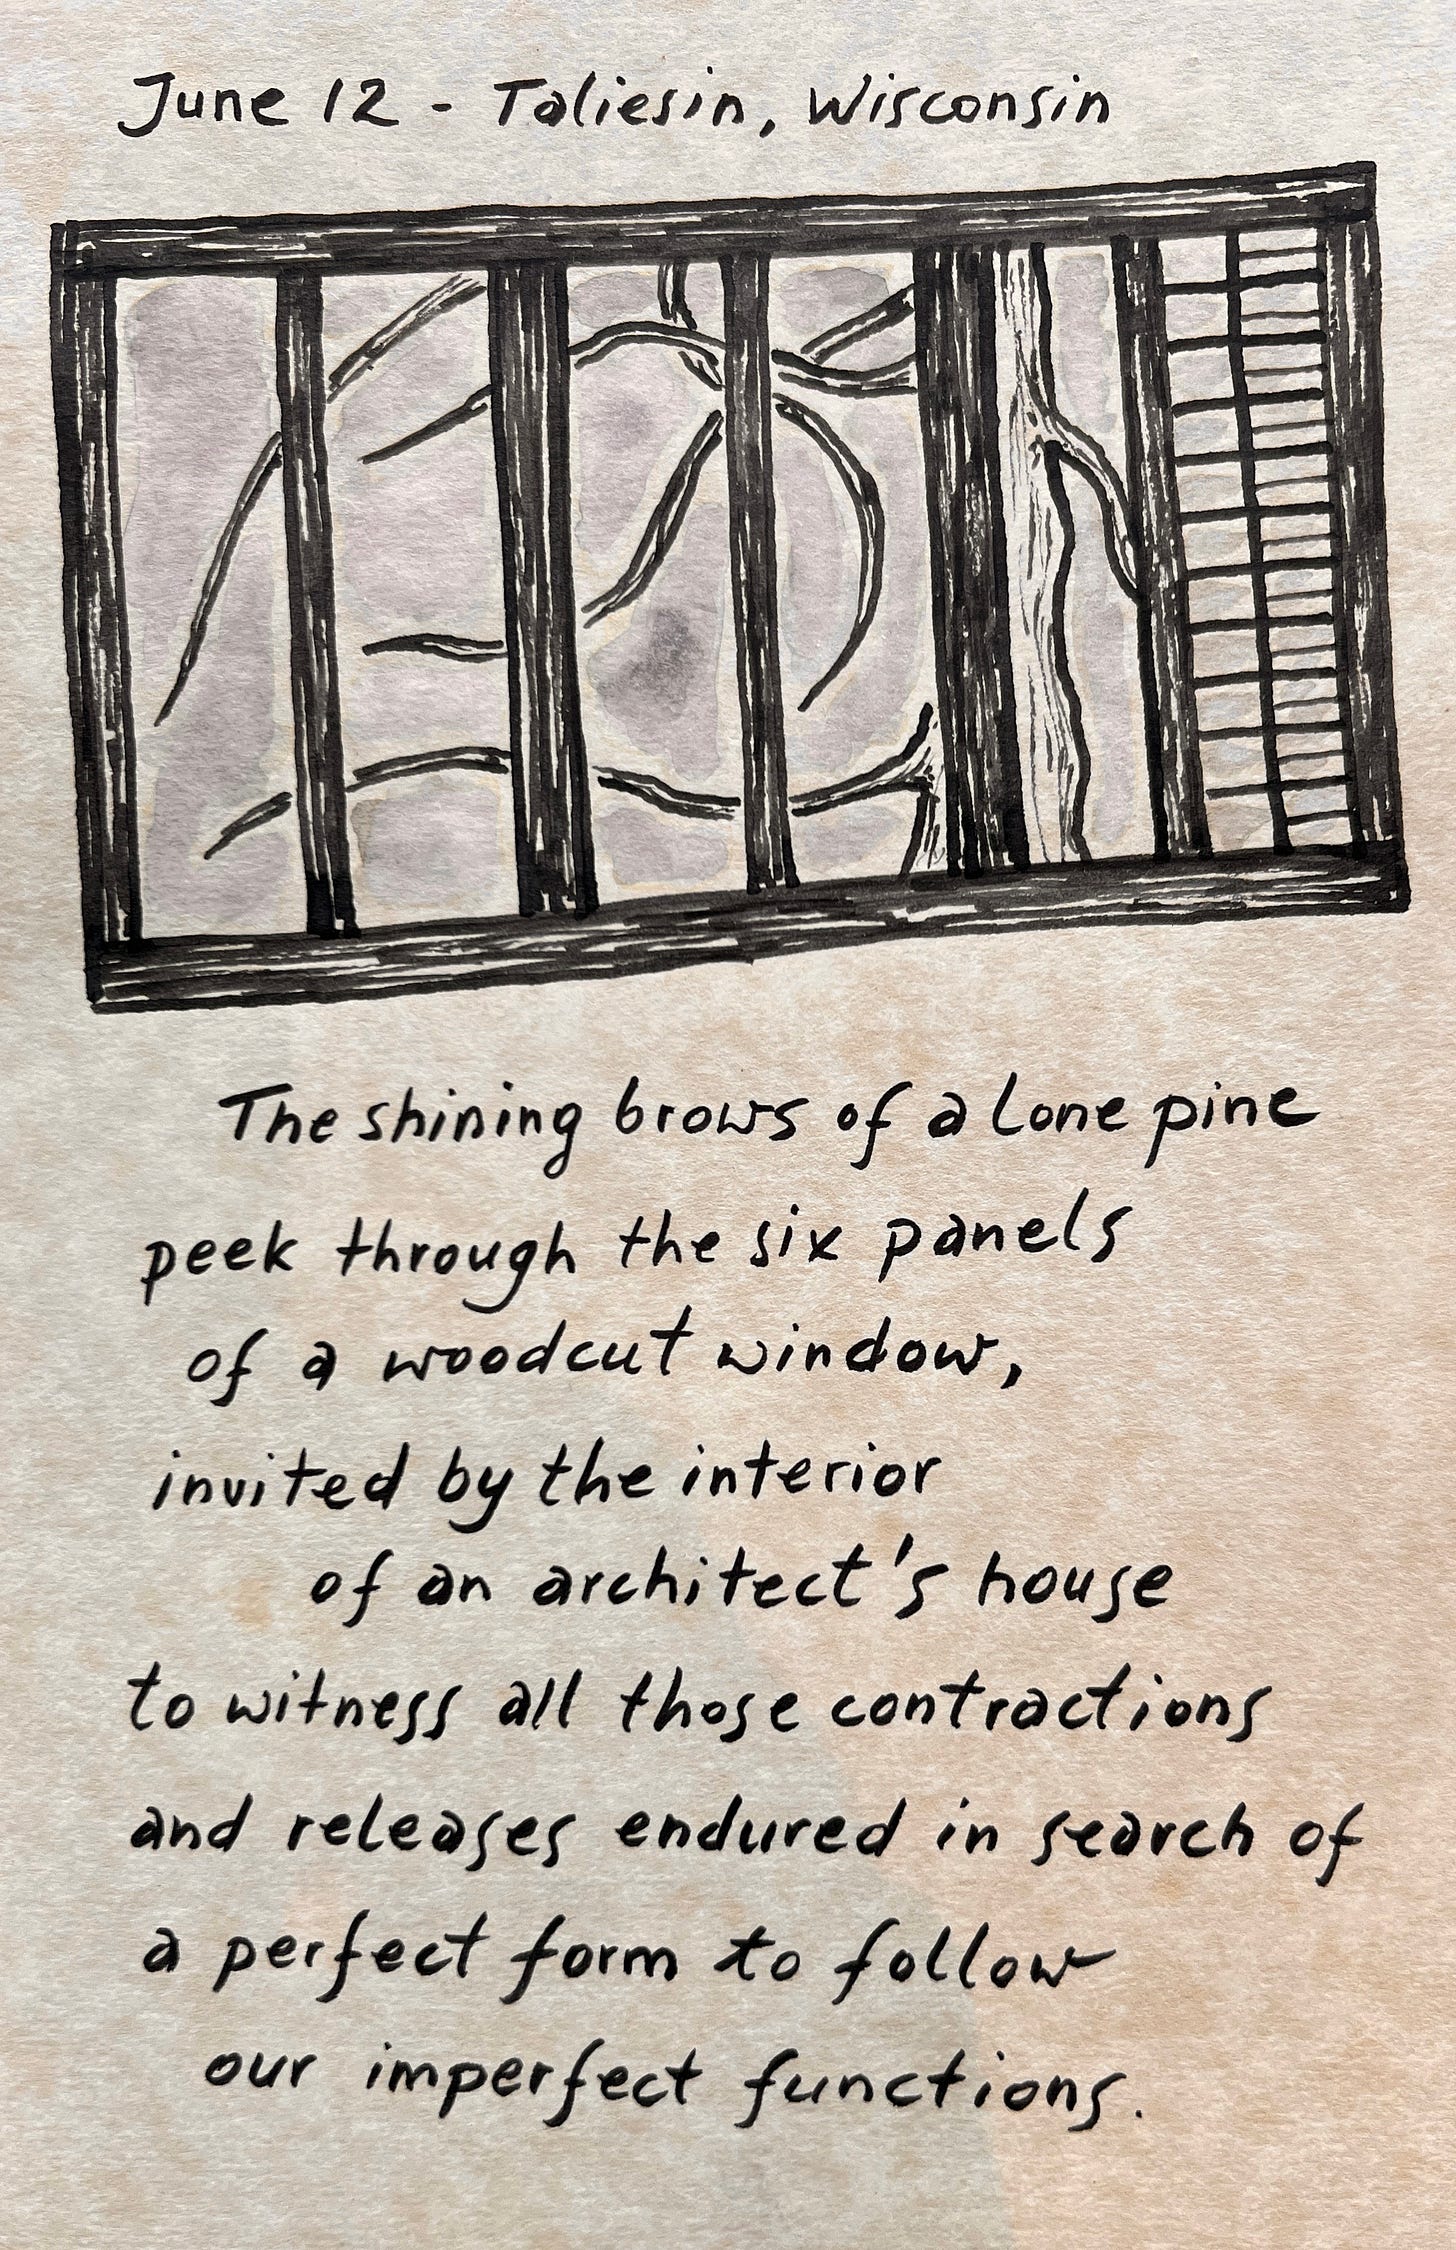 June 12 - Taliesin, Wisconsin
The shining brows of a lone pine
peek through the six panels
of a woodcut window,
invited by the interior
of an architect's house
to witness all those contractions
and releases endured in search of
a perfect form to follow
our imperfect functions.